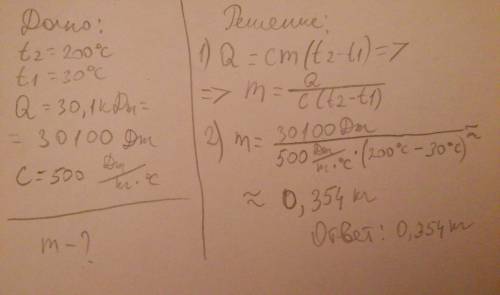 Дано:
t2 = 200°C
t1 = 30°C
Q = 30,1кДж =
= 30100 Дж
C = 500 Дж/кг·°C
m - ?
Решение:
1) Q = cm(t2-t1) =>
=> m = Q/c(t2-t1)
2) m = 30100 Дж/500 Дж/кг·°C · (200°C - 30°C) ≈
≈ 0,354 кг
Ответ: 0,354 кг